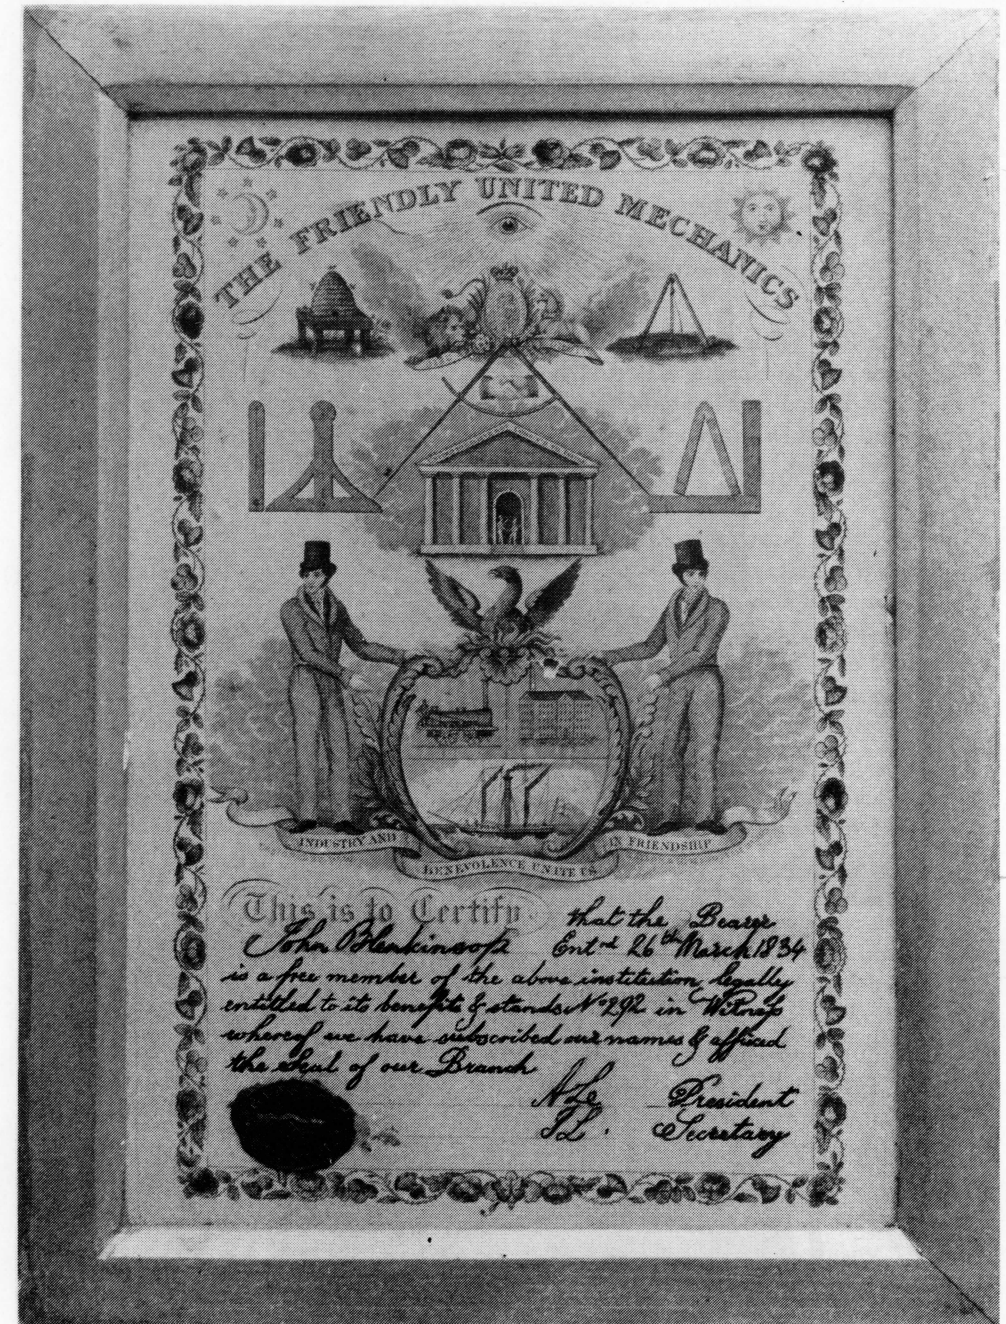 THE FRIENDLY UNITED MECHANICS
INDUSTRY AND
BENEVOLENCE UNITE US
IN FRIENDSHIP
This is to Certify that the Bearer
John Blenkinsop Entrd 26th March 1834
is a free member of the above institution legally
entitled to its benefits & stands No 292 in Witness
whereof we have subscribed our names & affixed
the Seal of our Branch
President
Secretary